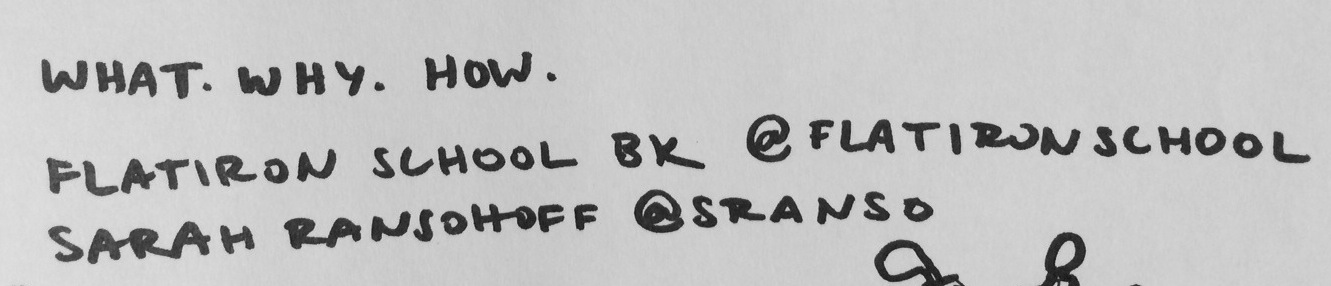 WHAT. WHY. HOW.
FLATIRON SCHOOL BK @FLATIRONSCHOOL
SARAH RANSOHOFF @SRANSO